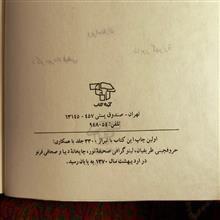 کلبه کتاب
تهران - صندوق پستی ۴۵۷-۱۳۱۴۵
تلفن: ۹۸۸۰۵۴
اولین چاپ این کتاب با تیراژ ۳۳۰۰ جلد با همکاری:
حروفچینی ظریفیان، لیتوگرافی صحیفه‌نور، چاپخانه دیبا و صحافی فرنو
در اردیبهشت سال ۱۳۷۰ به پایان رسید.